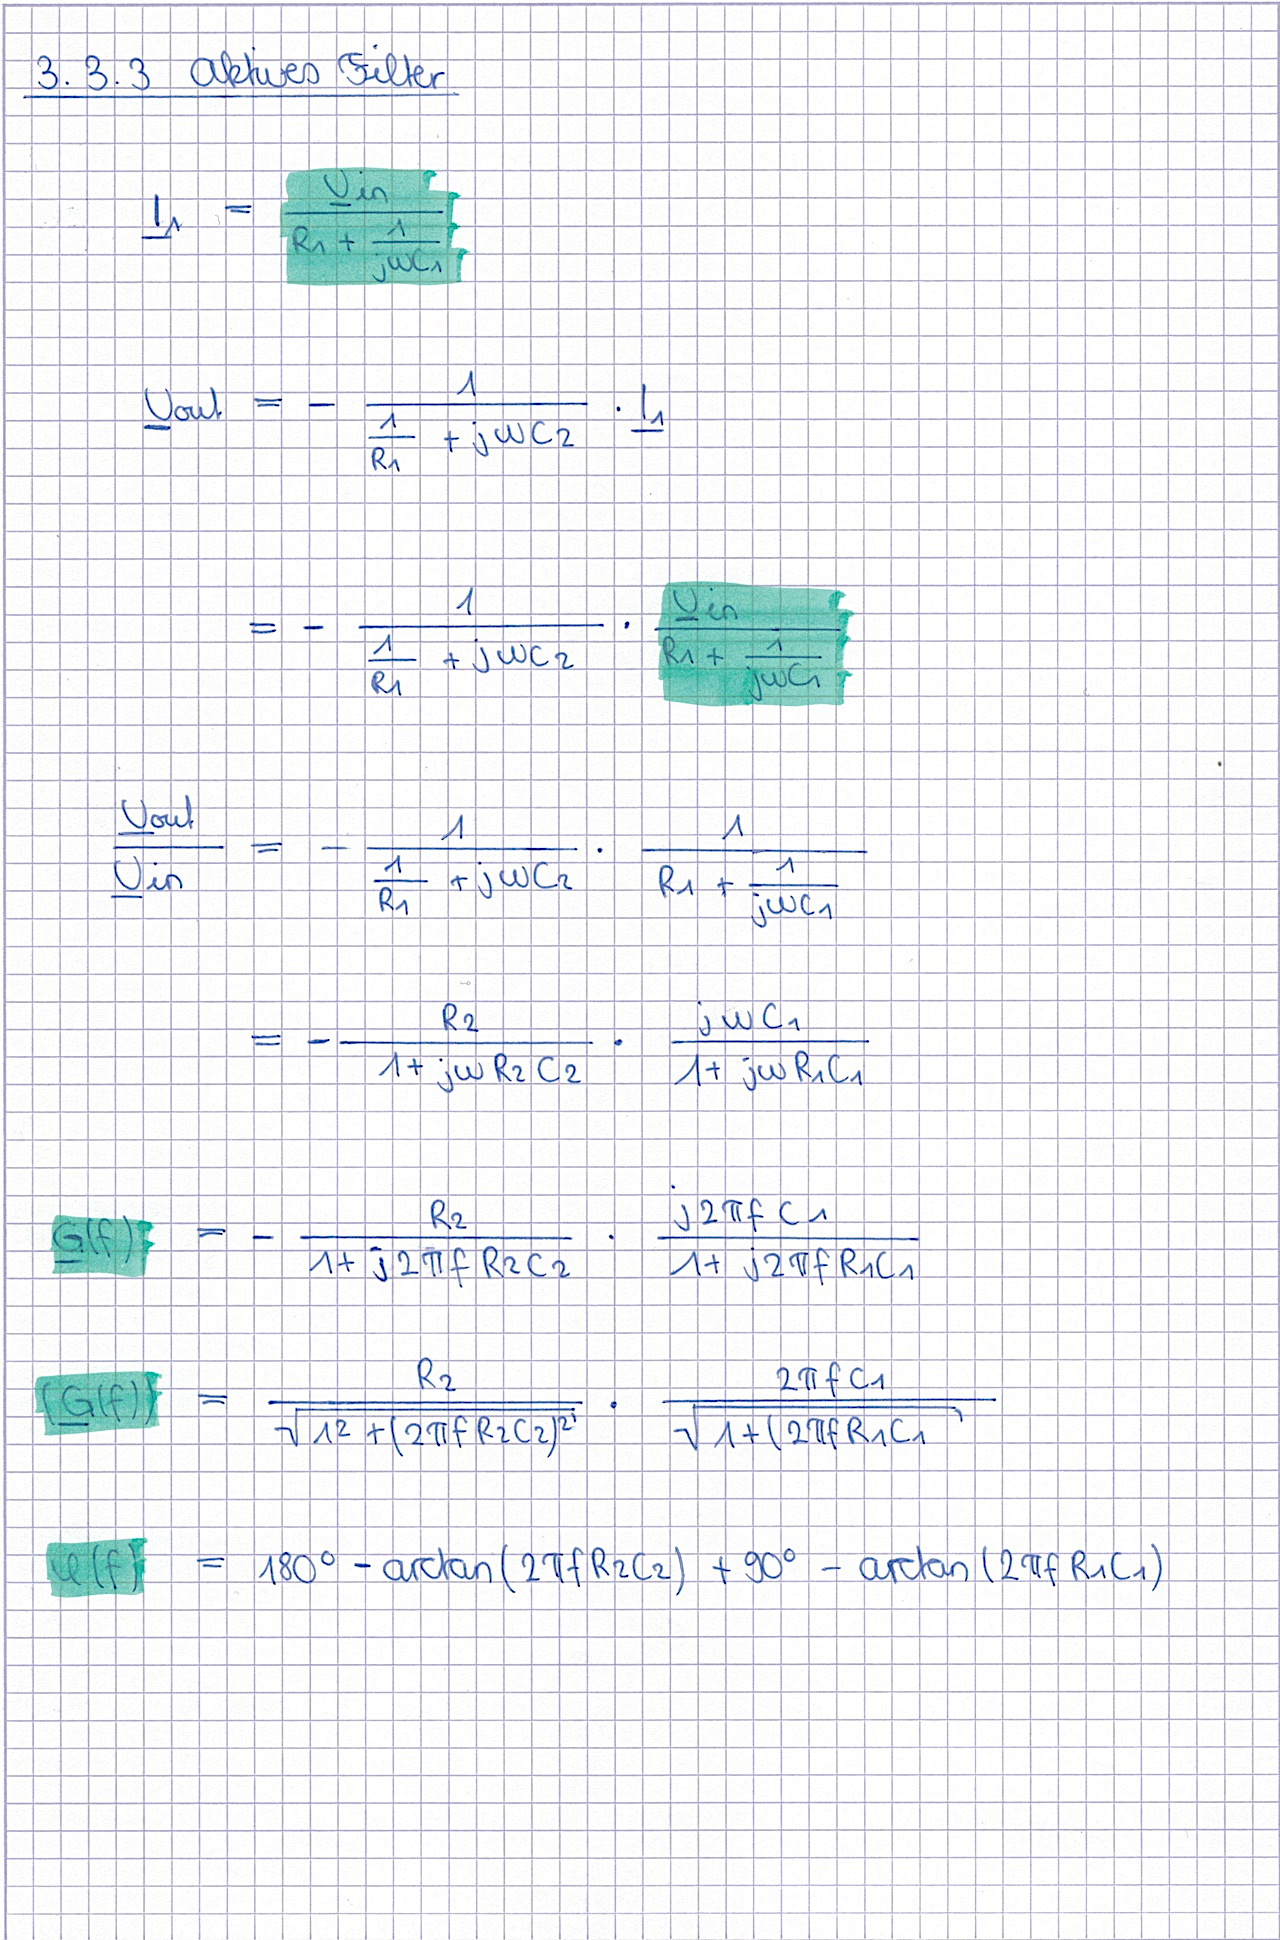 3.3.3 Aktives Filter
I̲1 = U̲in / (R1 + 1/(jωC1))
U̲out = - 1 / (1/R1 + jωC2) · I̲1
= - 1 / (1/R1 + jωC2) · U̲in / (R1 + 1/(jωC1))
U̲out / U̲in = - 1 / (1/R1 + jωC2) · 1 / (R1 + 1/(jωC1))
= - R2 / (1 + jωR2C2) · jωC1 / (1 + jωR1C1)
G̲(f) = - R2 / (1 + j2πfR2C2) · j2πfC1 / (1 + j2πfR1C1)
|G̲(f)| = R2 / √(1² + (2πfR2C2)²) · 2πfC1 / √(1 + (2πfR1C1
φ(f) = 180° - arctan(2πfR2C2) + 90° - arctan(2πfR1C1)